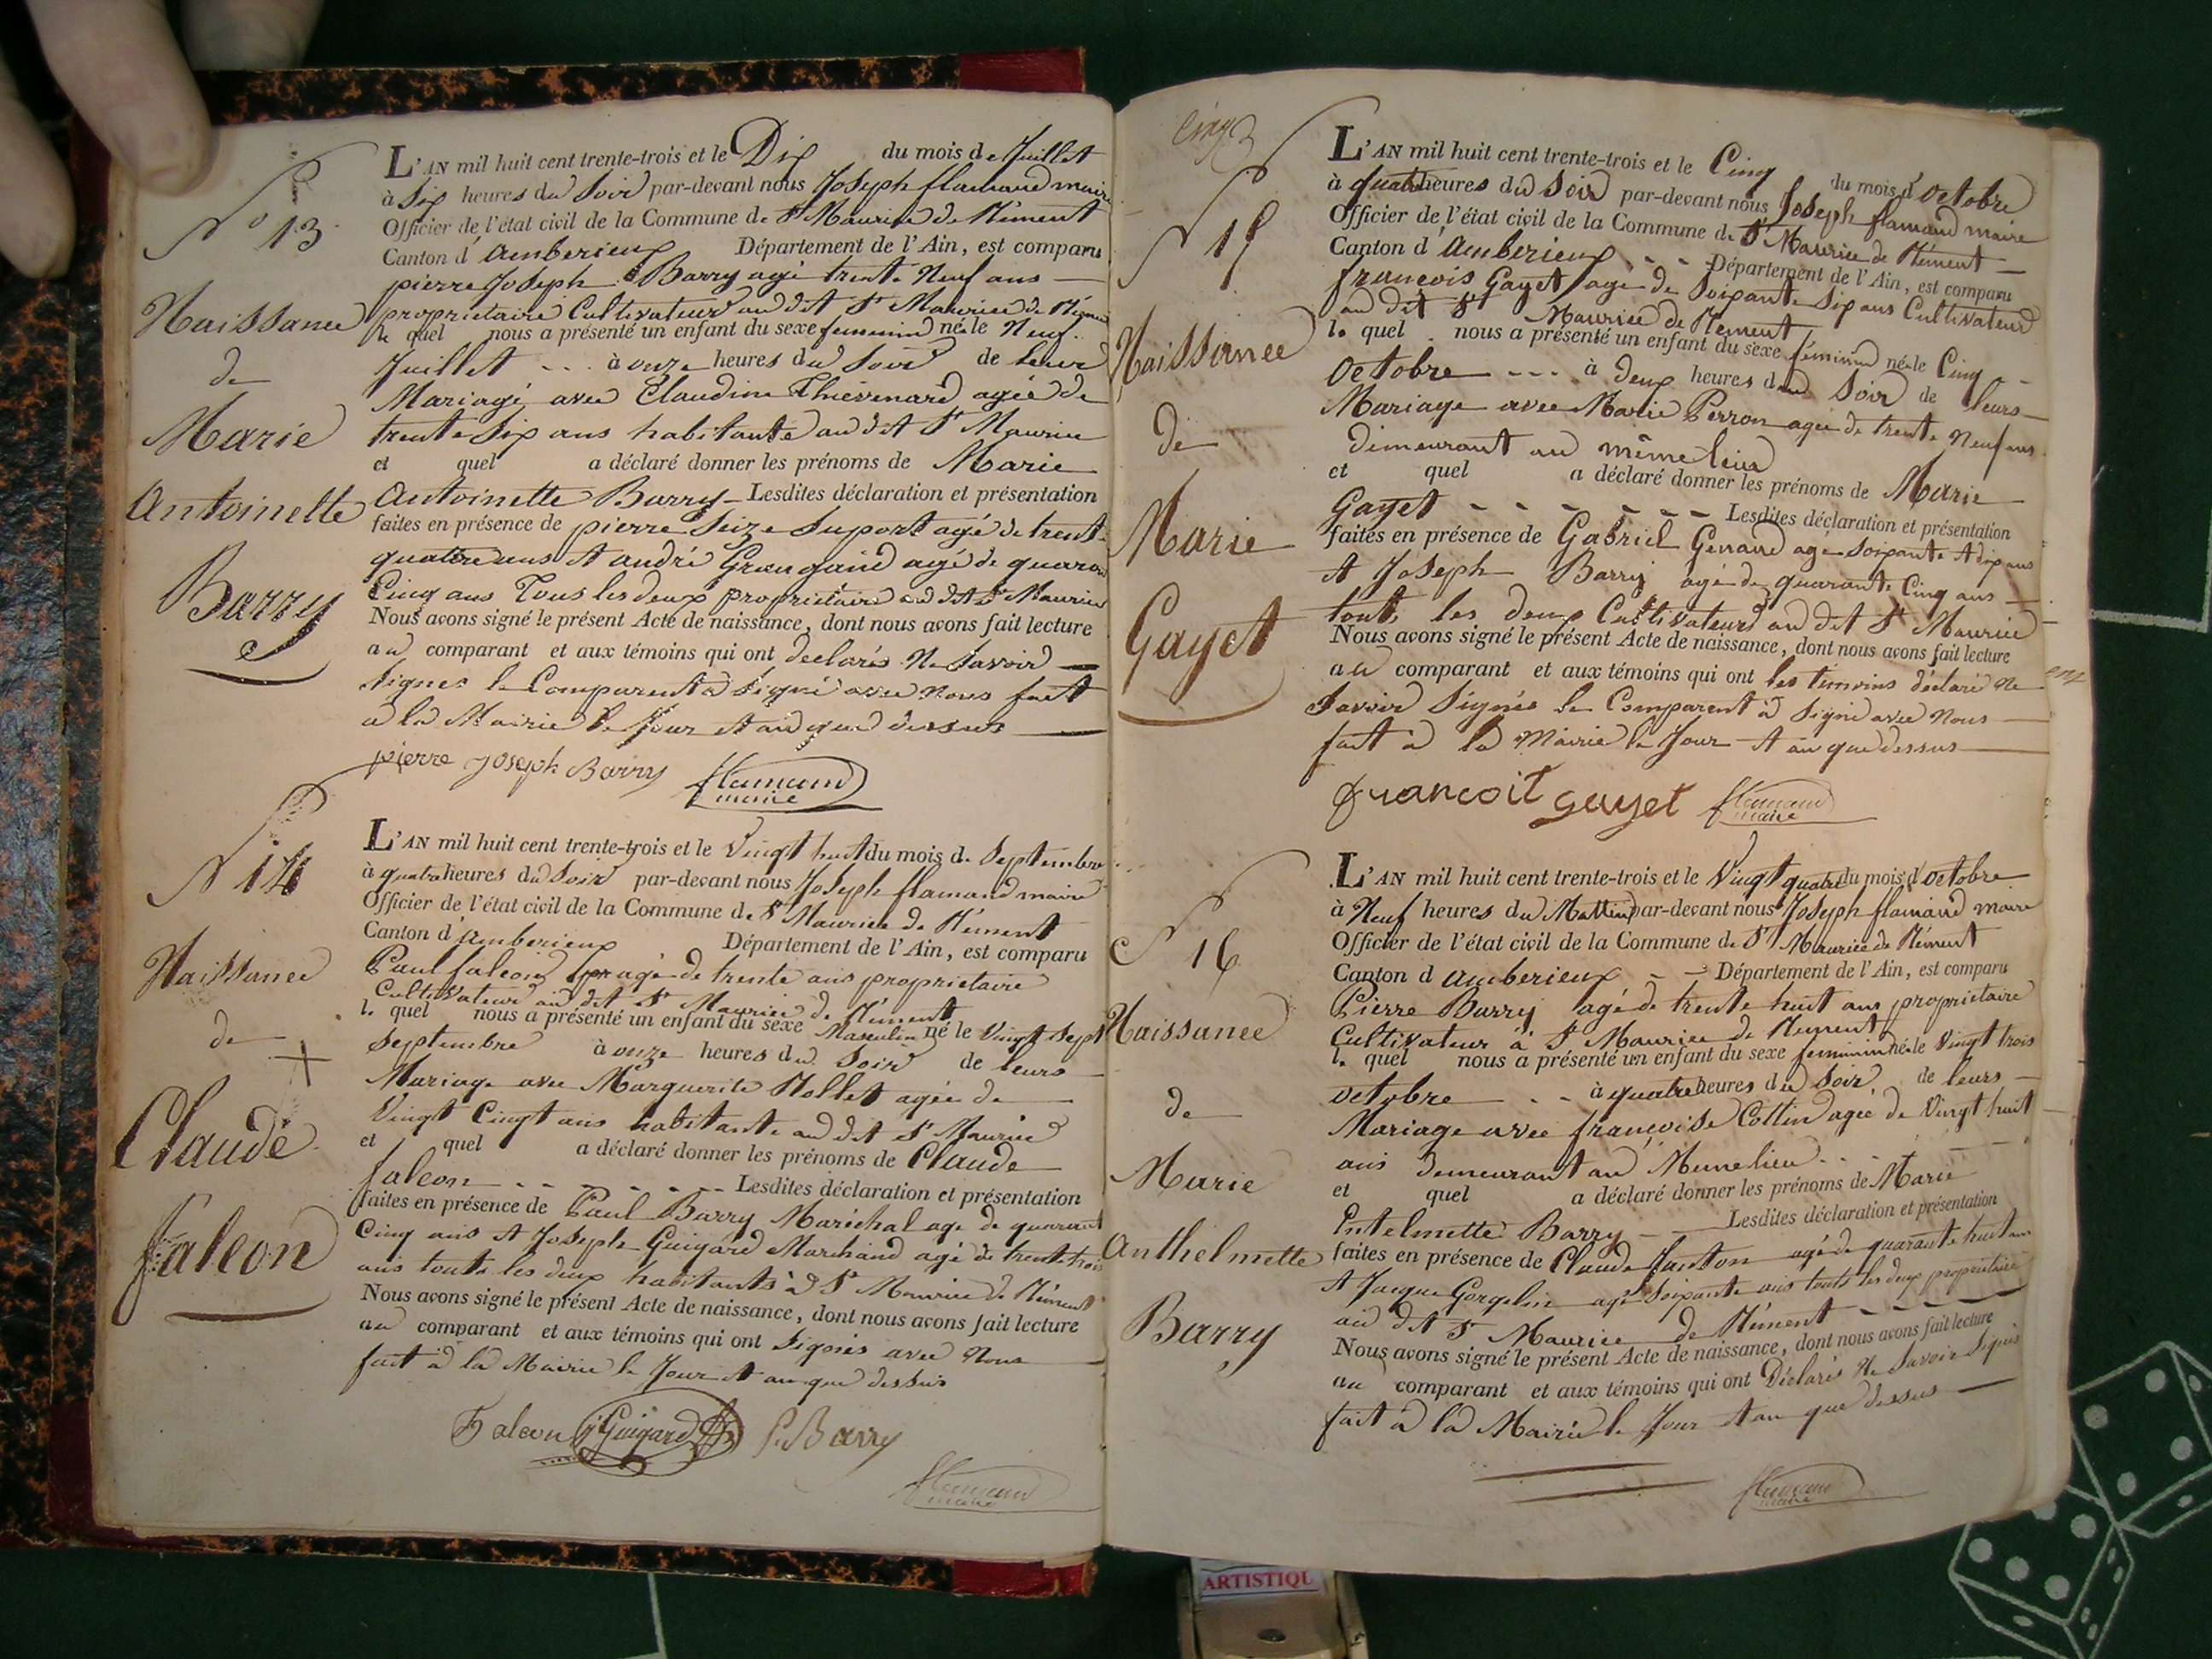 N° 13
Naissance
de
Marie
Antoinette
Barry
L'AN mil huit cent trente-trois et le Dix du mois de Juillet
à Six heures du Soir par-devant nous Joseph flamand maire
Officier de l'état civil de la Commune de St Maurice de Rément
Canton d'amberieux Département de l'Ain, est comparu
pierre Joseph Barry agé trente Neuf ans
propriétaire Cultivateur au dit St Maurice de Rément
le quel nous a présenté un enfant du sexe feminin née le Neuf
Juillet à onze heures du Soir de leur
Mariage avec Claudine Thievenard agée de
trente Six ans habitante au dit St Maurice
et quel a déclaré donner les prénoms de Marie
Antoinette Barry Lesdites déclaration et présentation
faites en présence de pierre Seize Suport agé de trente
quatre ans et andré agé de quarante
Cinq ans Tous les deux propriétaire au dit St Maurice
Nous avons signé le présent Acte de naissance, dont nous avons fait lecture
au comparant et aux témoins qui ont declarés Ne Savoir
Signer le Comparent a Signé avec nous fait
a la Mairie le Jour et an que dessus
pierre joseph Barry flamand
maire
N 14
Naissance
de
Claude
falcon
L'AN mil huit cent trente-trois et le Vingt huit du mois de Septembre
à quatre heures du Soir par-devant nous Joseph flamand maire
Officier de l'état civil de la Commune de St Maurice de Rément
Canton d'amberieux Département de l'Ain, est comparu
Paul falcon agé de trente ans proprietaire
Cultivateur au dit St Maurice de Rément
le quel nous a présenté un enfant du sexe Masculin né le Vingt Sept
Septembre à onze heures du Soir de leurs
Mariage avec Marguerite Rollet agée de
Vingt Cinqt ans habitante au dit St Maurice
et quel a déclaré donner les prénoms de Claude
falcon Lesdites déclaration et présentation
faites en présence de Paul Barry Maréchal age de quarant
Cinq ans et Joseph Guigard Marchand agé de trente trois
ans toute les deux habitants à St Maurice de Rément
Nous avons signé le présent Acte de naissance, dont nous avons fait lecture
au comparant et aux témoins qui ont Signés avec Nous
fait à la Mairie le Jour et an que dessus
Falcon j Guigard P. Barry
flamand
maire
Cinq
N 15
Naissance
de
Marie
Gayet
L'AN mil huit cent trente-trois et le Cinq du mois d'octobre
à quatre heures du Soir par-devant nous Joseph flamand maire
Officier de l'état civil de la Commune de St Maurice de Rément
Canton d'Amberieux Département de l'Ain, est comparu
francois Gayet age de Soixante Six ans Cultivateur
au dit St Maurice de Rément
le quel nous a présenté un enfant du sexe féminin née le Cinq
octobre à deux heures du Soir de leurs
Mariage avec Marie Perron agée de trente Neuf ans
dimeurant au même lieu
et quel a déclaré donner les prénoms de Marie
Gayet Lesdites déclaration et présentation
faites en présence de Gabriel age Soixante et dix ans
et Joseph Barry agé de quarante Cinq ans
touts les deux Cultivateurs au dit St Maurice
Nous avons signé le présent Acte de naissance, dont nous avons fait lecture
au comparant et aux témoins qui ont les témoins déclaré ne
Savoir Signés le Comparent a Signé avec Nous
fait à la Mairie le Jour et an que dessus
francoit gayet flamand
maire
N 16
Naissance
de
Marie
Anthelmette
Barry
L'AN mil huit cent trente-trois et le Vingt quatre du mois d'octobre
à Neuf heures du Mattin par-devant nous Joseph flamand maire
Officier de l'état civil de la Commune de St Maurice de Rément
Canton d amberieux Département de l'Ain, est comparu
Pierre Barry agé de trente huit ans proprietaire
Cultivateur à St Maurice de Rement
le quel nous a présenté un enfant du sexe feminin née le Vingt trois
octobre à quatre heures du Soir de leurs
Mariage avec françoise Collin agée de Vingt huit
ans demeurant au Meme lieu
et quel a déclaré donner les prénoms de Marie
Entelmette Barry Lesdites déclaration et présentation
faites en présence de Claude Janton agé de quarante huit ans
et Jacque Gorgelin agé Soixante ans touts les deux propriétaire
au dit St Maurice de Rément
Nous avons signé le présent Acte de naissance, dont nous avons fait lecture
au comparant et aux témoins qui ont Déclarés Ne Savoir Signés
fait à la Mairie le Jour et an que dessus
flamand
maire
ARTISTIQU